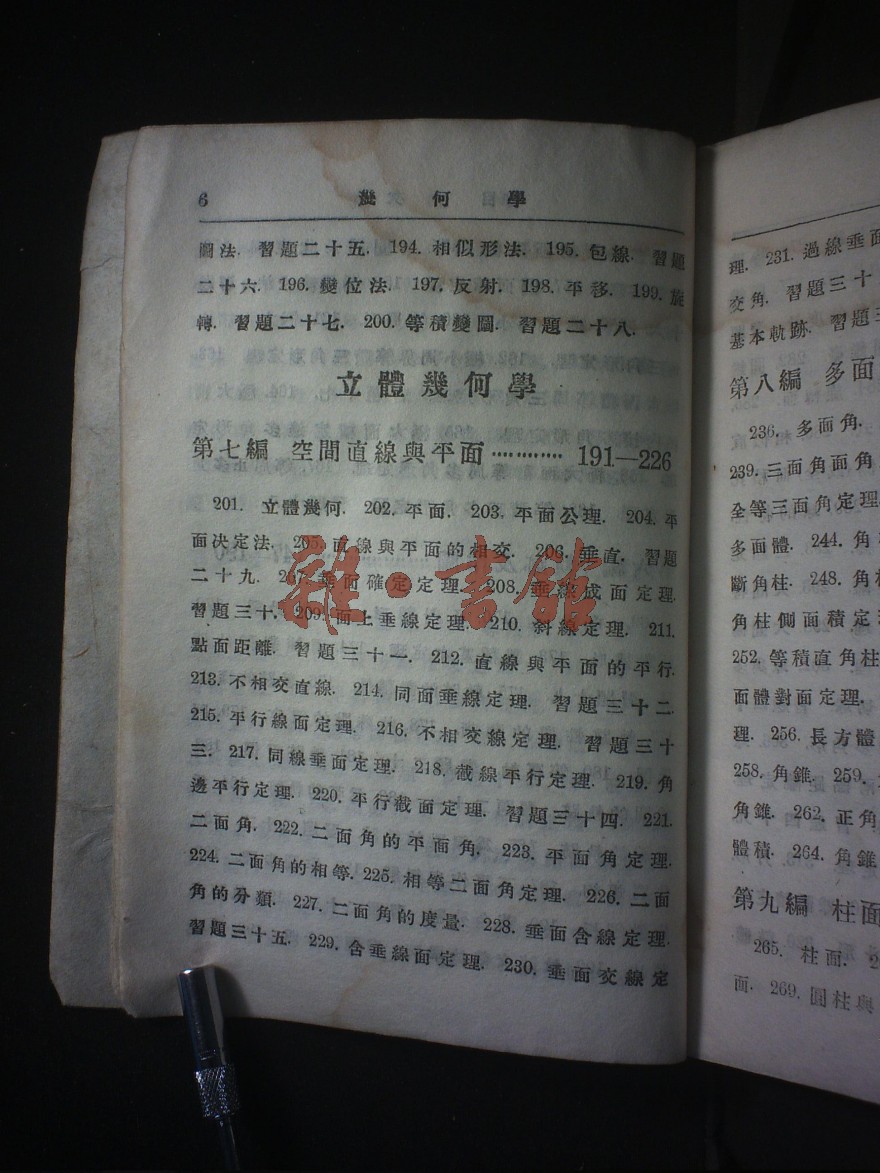 6 幾何學
圖法. 習題二十五. 194. 相似形法. 195. 包線. 習題
二十六. 196. 變位法. 197. 反射. 198. 平移. 199. 旋
轉. 習題二十七. 200. 等積變圖. 習題二十八.
立體幾何學
第七編 空間直線與平面………… 191—226
201. 立體幾何. 202. 平面. 203. 平面公理. 204. 平
面決定法. 205. 直線與平面的相交. 206. 垂直. 習題
二十九. 207. 垂面確定定理. 208. 垂線成面定理.
習題三十. 209. 面上垂線定理. 210. 斜線定理. 211.
點面距離. 習題三十一. 212. 直線與平面的平行.
213. 不相交直線. 214. 同面垂線定理. 習題三十二.
215. 平行線面定理. 216. 不相交線定理. 習題三十
三. 217. 同線垂面定理. 218. 截線平行定理. 219. 角
邊平行定理. 220. 平行截面定理. 習題三十四. 221.
二面角. 222. 二面角的平面角. 223. 平面角定理.
224. 二面角的相等. 225. 相等二面角定理. 226. 二面
角的分類. 227. 二面角的度量. 228. 垂面含線定理.
習題三十五. 229. 含垂線面定理. 230. 垂面交線定
雜·書館
理. 231. 過線垂面
交角. 習題三十
基本軌跡. 習題三
第八編 多面
236. 多面角.
239. 三面角面角
全等三面角定理
多面體. 244. 角
斷角柱. 248. 角
角柱側面積定
252. 等積直角柱
面體對面定理.
理. 256. 長方體
258. 角錐. 259.
角錐. 262. 正角
體積. 264. 角錐
第九編 柱面
265. 柱面. 2
面. 269. 圓柱與